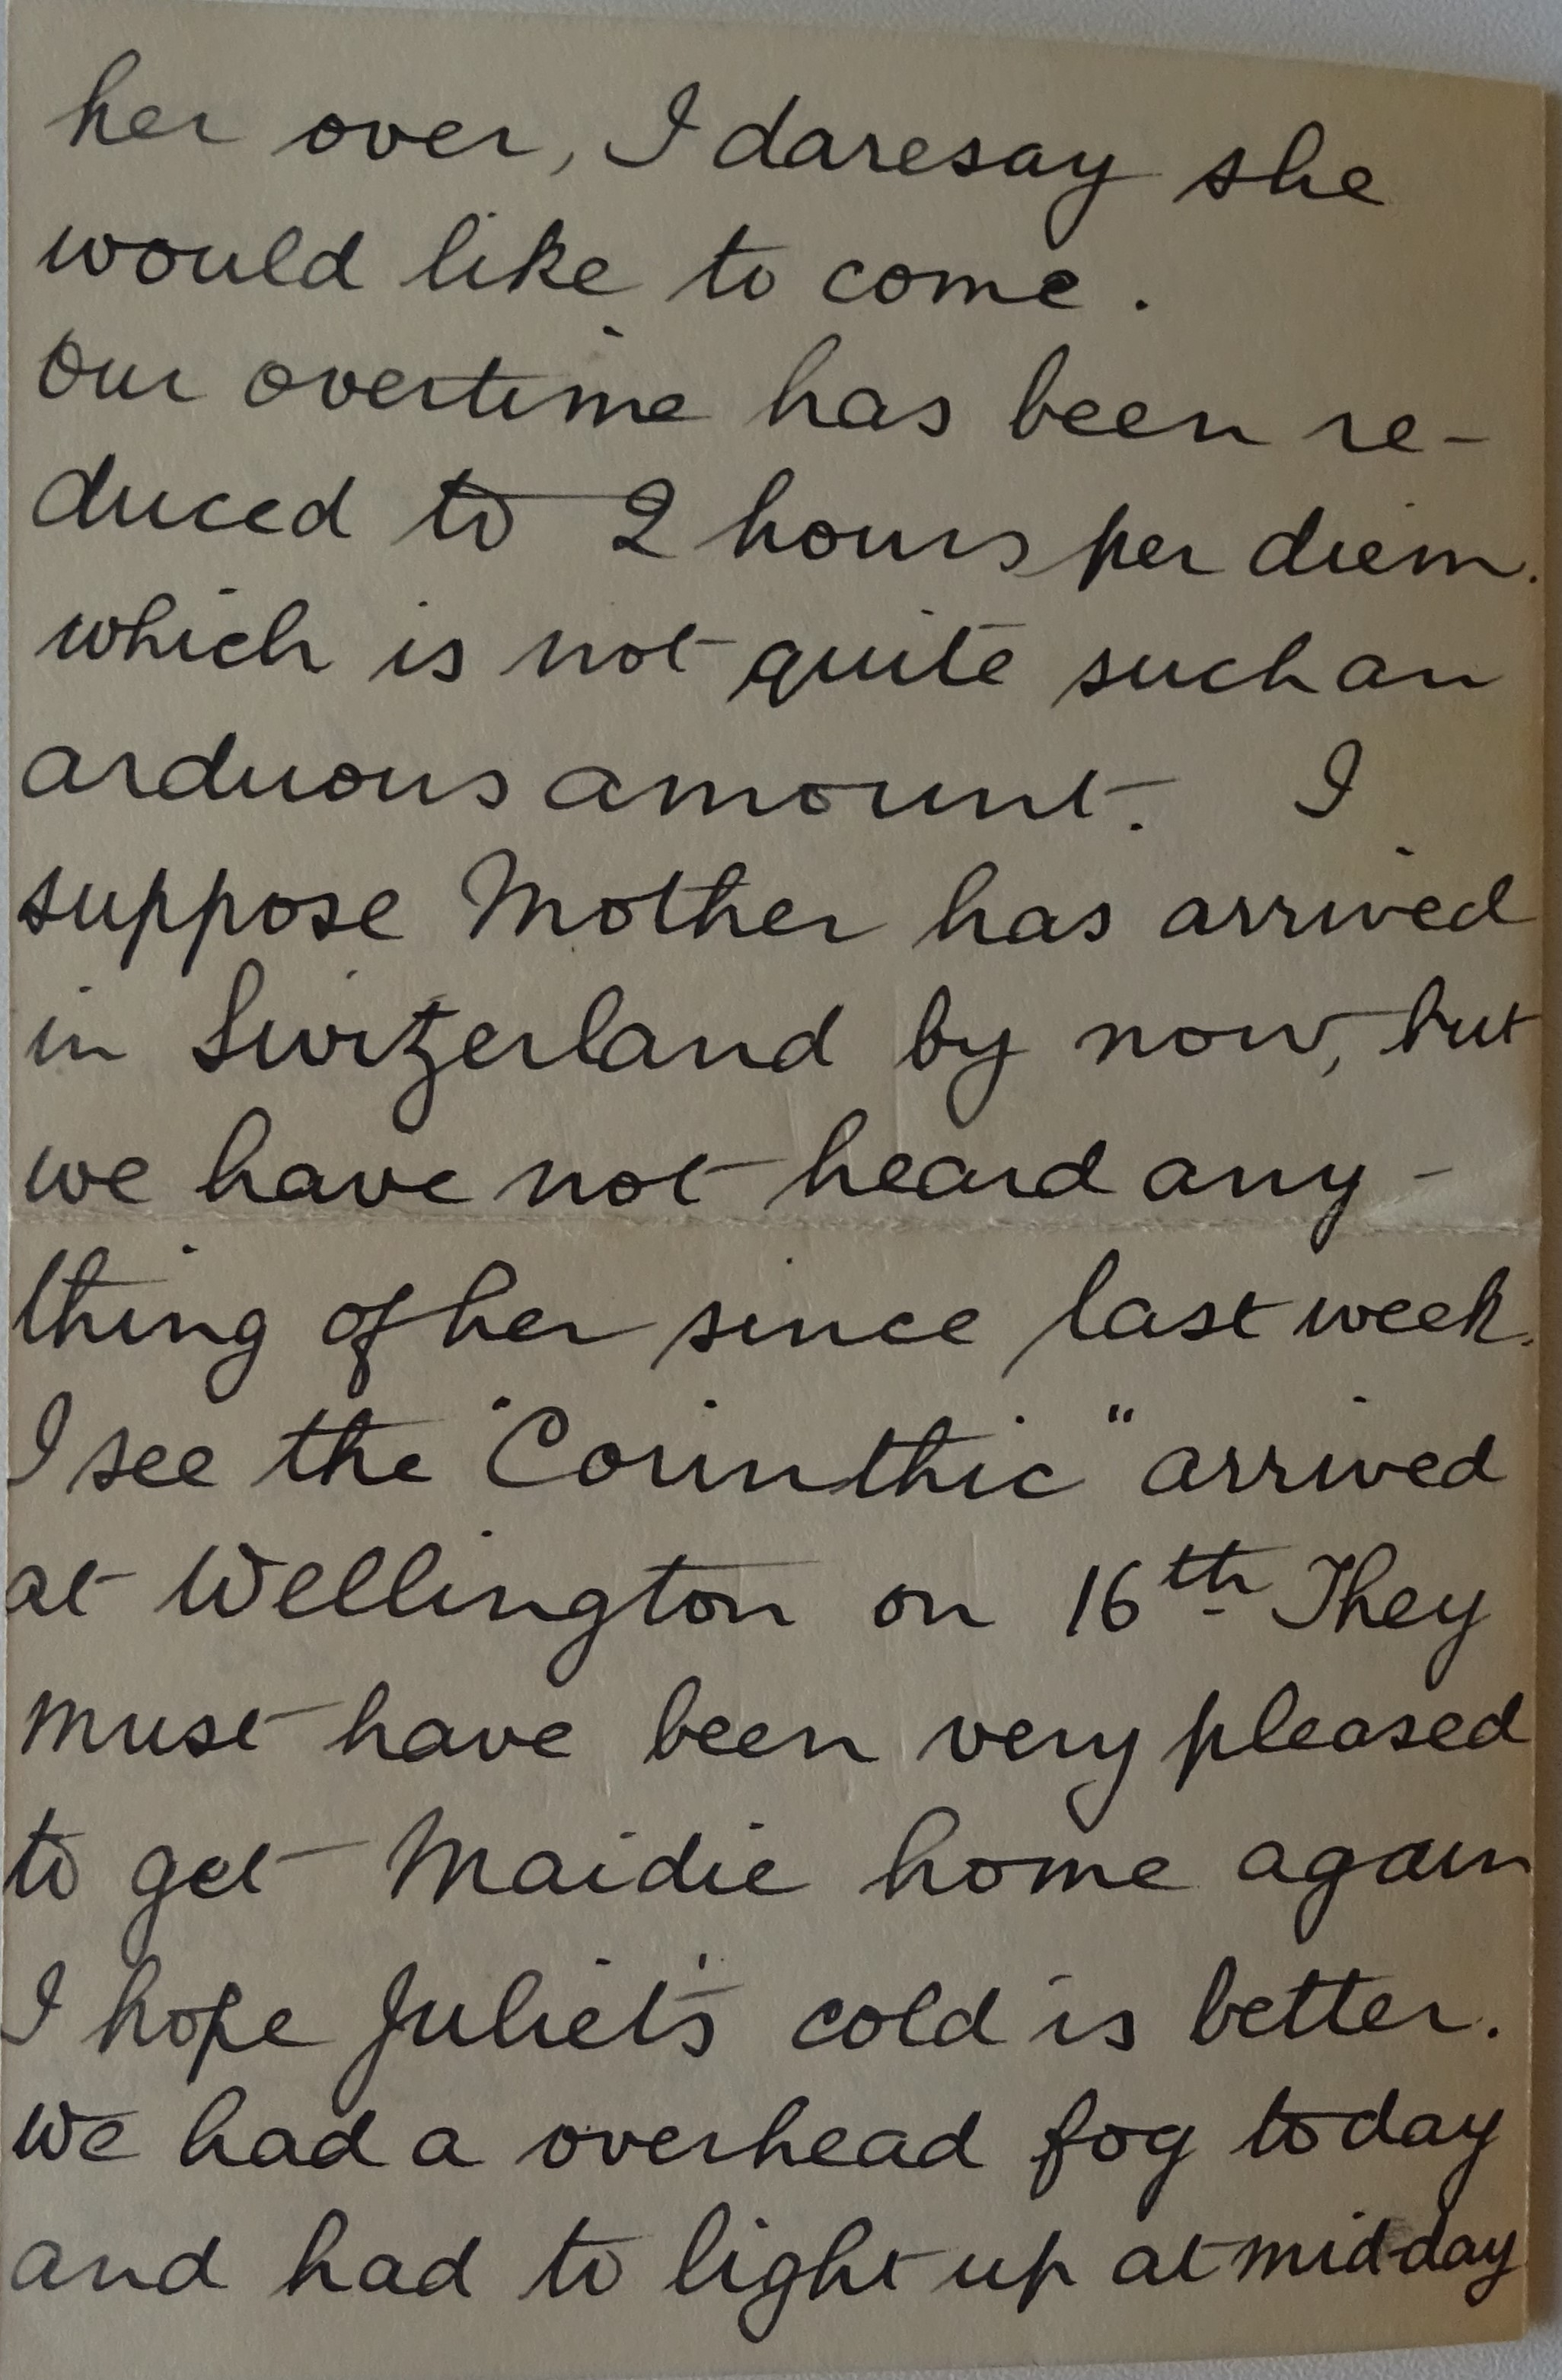 her over, I daresay she
would like to come.
Our overtime has been re-
duced to 2 hours per diem.
which is not quite such an
arduous amount. I
suppose Mother has arrived
in Switzerland by now, but
we have not heard any-
thing of her since last week.
I see the "Corinthic" arrived
at Wellington on 16th They
must have been very pleased
to get Maidie home again
I hope Juliet's cold is better.
We had a overhead fog today
and had to light up at midday